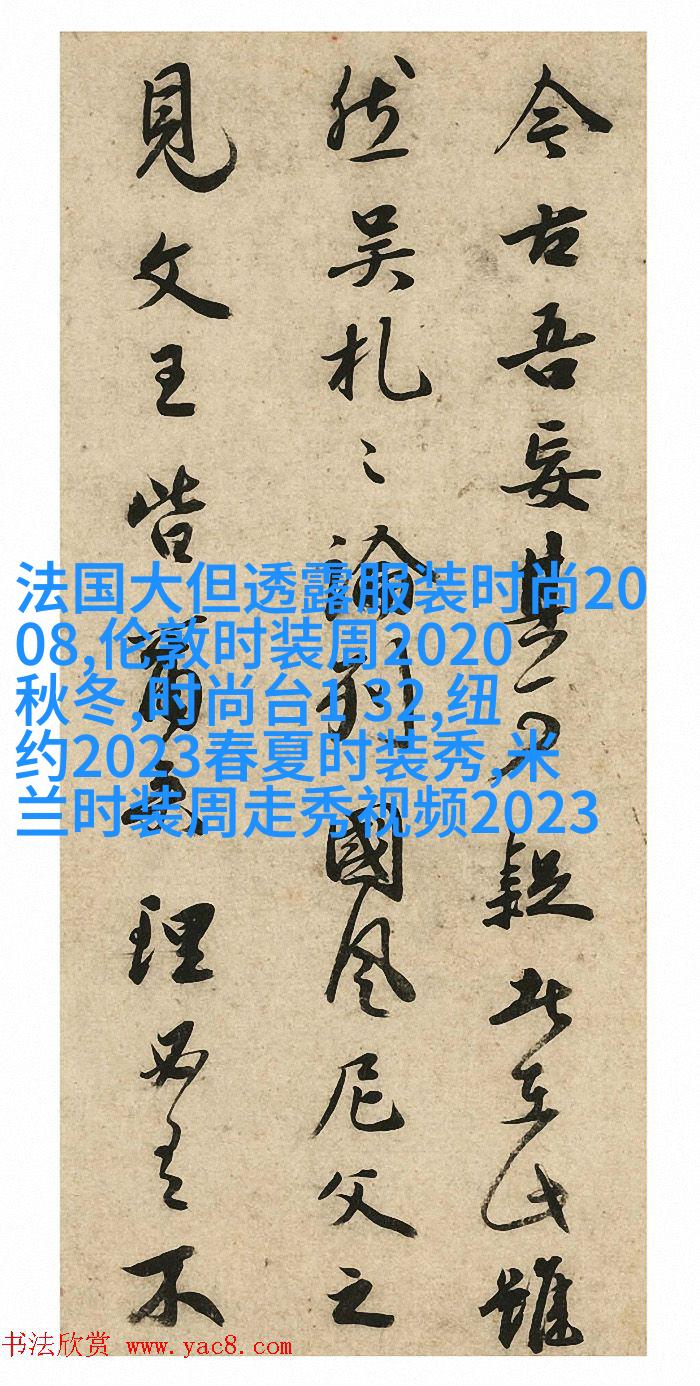 今古吾妄其可疑者在此雖
然吳札之論列國風尼父之
見文王皆理必有不
法国大但透露服装时尚20
08,伦敦时装周2020
秋冬,时尚台1 32,纽
约2023春夏时装秀,米
兰时装周走秀视频2023
书法欣赏 www.yac8.com